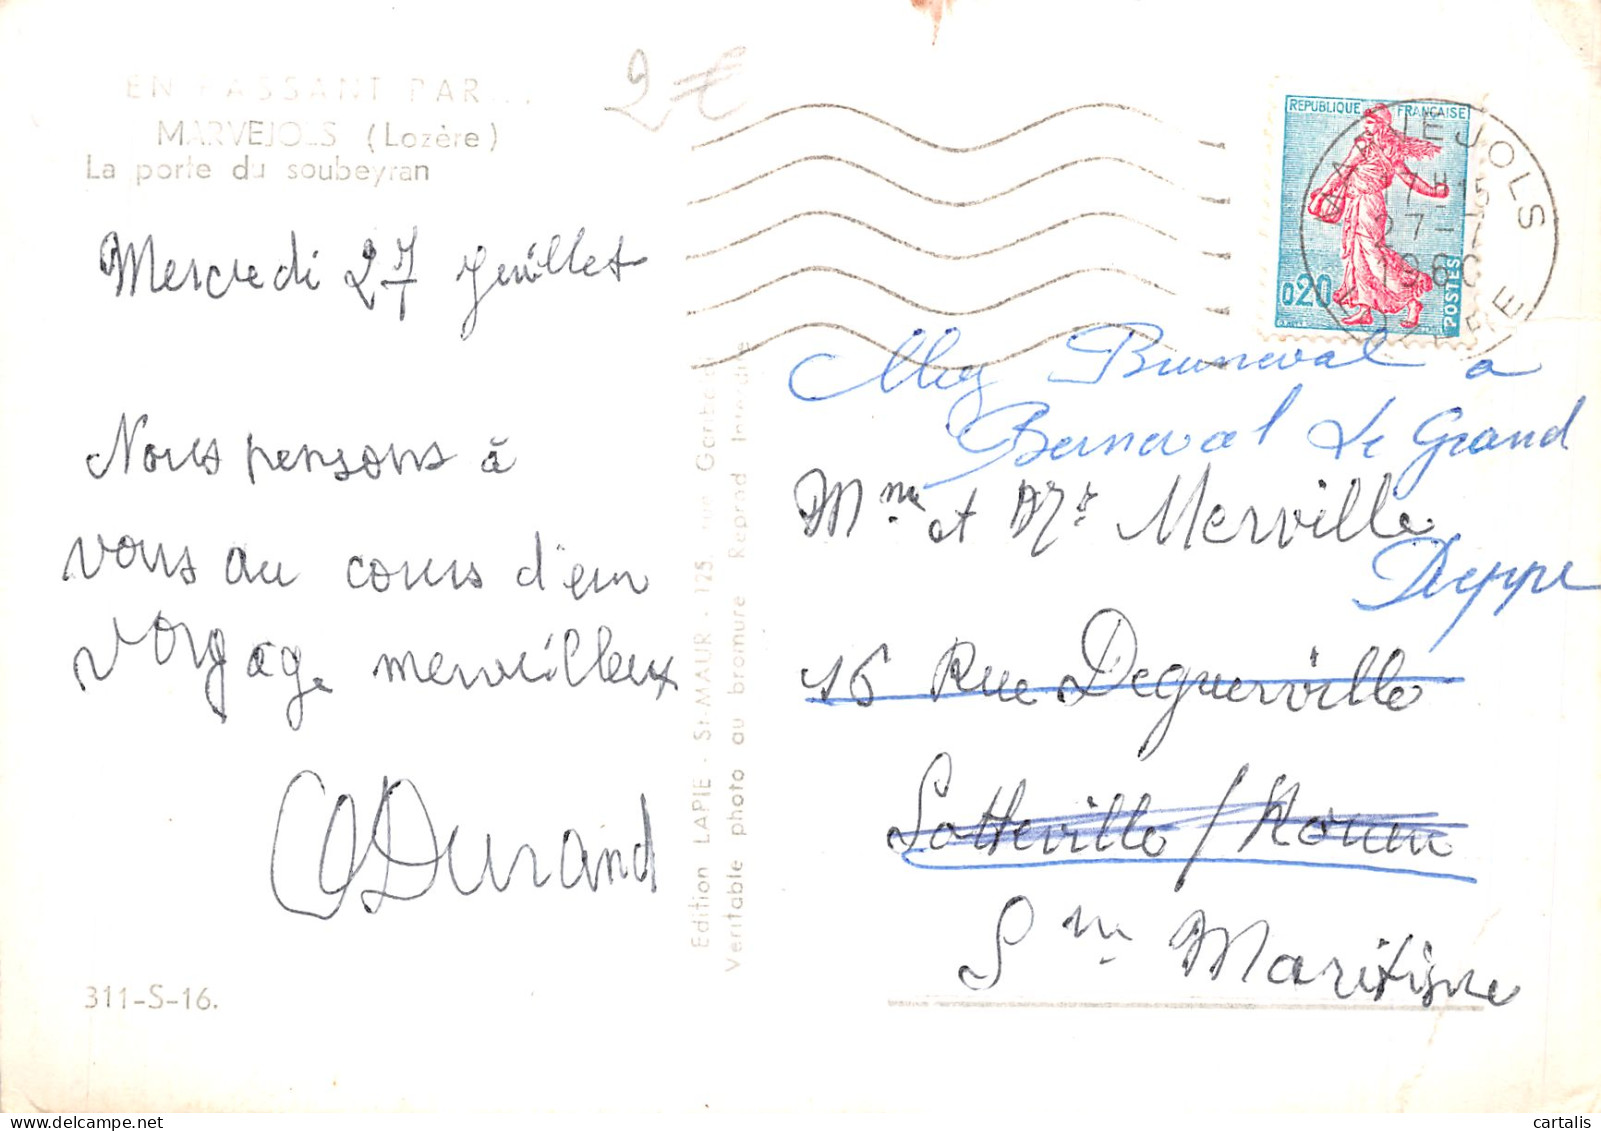 EN PASSANT PAR...
MARVEJOLS (Lozère)
La porte du soubeyran
2€
Mercredi 27 juillet
Nous pensons à
vous au cours d'un
voyage merveilleux
Durand
311-S-16.
Edition LAPIE - St-MAUR - 125 rue
Veritable photo au bromure Reprod Interdite
REPUBLIQUE FRANÇAISE
0,20
POSTES
MARVEJOLS
17H15
27-7
1960
LOZERE
Bruneval a
Berneval Le Grand
Mme et Mr Merville
Dieppe
16 Rue Deguerville
Sotteville / Rouen
Sne Maritime
cartalis